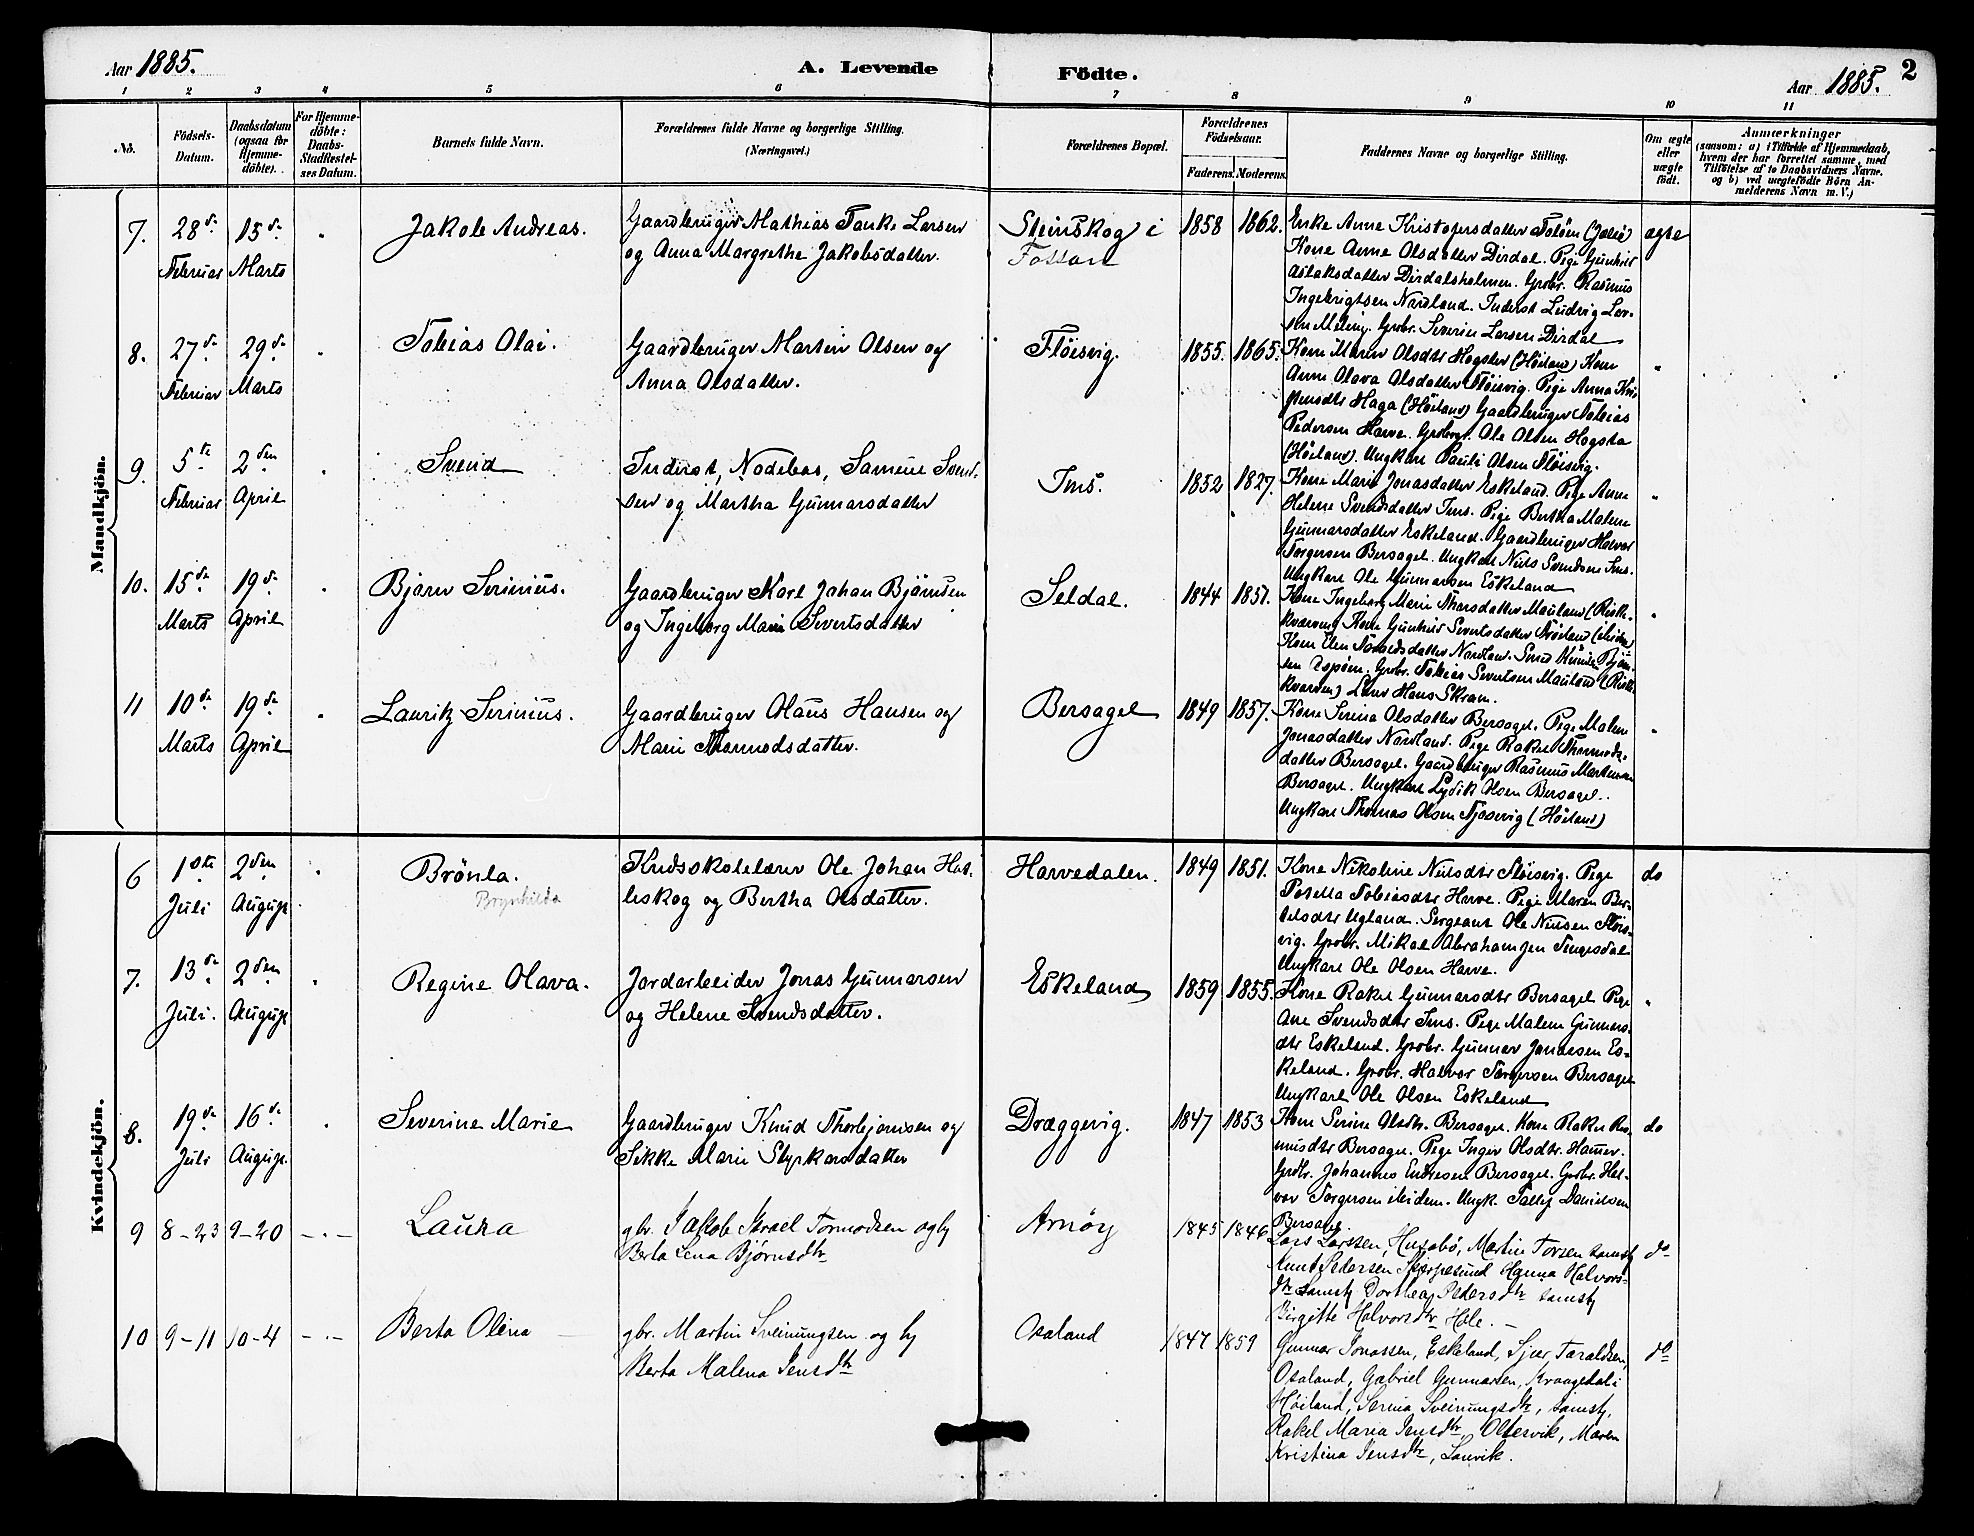 Aar 1885.
A. Levende Födte.
Aar 1885. 2
1 2 3 4 5 6 7 8 9 10 11
No.
Födsels-
Datum.
Daabsdatum
(ogsaa for
Hjemme-
döbte).
For Hjemme-
döbte:
Daabs-
Stadfestel-
ses Datum.
Barnets fulde Navn.
Forældrenes fulde Navne og borgerlige Stilling.
(Næringsvei.)
Forældrenes Bopæl.
Forældrenes
Födselsaar.
Faderens. Moderens.
Faddernes Navne og borgerlige Stilling.
Om ægte
eller
uægte
födt.
Anmærkninger
(saasom: a) i Tilfælde af Hjemmedaab,
hvem der har forrettet samme, med
Tilföielse af to Daabsvidners Navne.
og b) ved uægtefödte Börn An-
melderens Navn m. V.)
Mandkjön.
7. 28de Februar 15de Marts Jakob Andreas.
Gaardbruger Mathias Tanke Larsen
og Anna Margrethe Jakobsdatter.
Steinskog i
Fossan
1858 1862.
Enke Anne Kristofersdatter
Kone Anne Olsdatter Dirdal. Pige Gunhild
Aslaksdatter Dirdalsholmen. Grbr. Rasmus
Ingebrigtsen Nordland. Inderst Ludvig Lar-
sen Meling. Grbr. Severin Larsen Dirdal
ægte
8. 27de Februar 29de Marts Tobias Olai.
Gaardbruger Martin Olsen og
Anna Olsdatter.
Flöisvig.
1855. 1865.
Kone Maren Olsdtr (Höiland) Kone
Anne Olava Olsdatter Flöisvig. Pige Anna Kri-
Haga (Höiland) Gaardbruger Tobias
Pedersen Harve. Ole Olsen Hogsta
(Höiland). Ungkarl Pauli Olsen Flöisvig.
"
9. 5te Februar 2den April Svend
Inderst, Nodebas, Samuel Svend-
sen og Martha Gunnarsdatter
Ims.
1852 1827.
Kone Mari Jonasdatter Eskeland. Pige Anne
Helene Svendsdatter Ims. Pige Bertha Malene
Gunnarsdatter Eskeland. Gaardbruger Halvor
Torgersen Bersagel. Ungkarl Niels Svendsen Ims.
Ungkarl Ole Gunnarsen Eskeland
"
10. 15de Marts 19de April Bjarn Serinius.
Gaardbruger Karl Johan Björnsen
og Ingeborg Marie Sivertsdatter
Seldal.
1844 1851.
Kone Ingeborg Marie Mauland (Riske-
kværven) Kone Gunhild Sivertsdatter
Kone Elen Nordland.
Grbr. Tobias Sivertsen Mauland (Riske-
kværven) Hans Skran.
"
11 10de Marts 19de April Lauritz Serinius.
Gaardbruger Olaus Hansen og
Marie Thormodsdatter.
Bersagel
1849 1857.
Kone Serina Olsdatter Bersagel. Pige Malene
Jonasdatter Nordland. Pige Rakel Thormods-
datter Bersagel. Gaardbruger Rasmus Martinsen
Bersagel. Ungkarl Lydik Olsen Bersagel.
Ungkarl Thomas Olsen (Höiland)
"
Kvindekjön.
6 1ste Juli 2den August Brönla.
Brynhilda
Kredsskolelærer Ole Johan Hal-
leskog og Bertha Olsdatter.
Harvedalen.
1849 1851.
Kone Nikoline Nielsdtr Flöisvig. Pige
Tobiasdtr Harve. Pige Maren Ber-
telsdtr Ugland. Sergeant Ole Nielsen Flöis-
vig. Grbr. Mikal Abrahamsen Tengesdal
Ungkarl Ole Olsen Harve.
do
7. 13de Juli. 2den August Regine Olava.
Jordarbeider Jonas Gunnarsen
og Helene Svendsdatter.
Eskeland
1859 1855.
Kone Rakel Gunnarsdtr Bersagel Pige
Ane Svendsdtr Ims. Pige Malene Gunnars-
dtr Eskeland. Grbr. Gunnar Jonassen Es-
keland. Grbr. Halvor Torgersen Bersagel
Ungkarl Ole Olsen Eskeland
"
8. 19de Juli 16de August. Severine Marie
Gaardbruger Knud Thorbjørnsen og
Sikke Marie Styrkarsdatter
Dræggevig.
1847 1853
Kone Serine Olsdtr. Bersagel. Kone Rakel Ras-
musdtr Bersagel. Pige Inger Olsdtr. Hammer.
Grdbr. Johannes Endresen Bersagel. Grbr. Hal-
vor Torgersen ibidem. Ungk. Tallef Danielsen
Bersagel.
do
9 8-23 9-20 -"- Laura
gbr. Jakob Israel Tormodsen og h
Berta Lena Bjørnsdtr
Arnöy
1845 1846
Lars Larssen, Husabö, Martin Torsen samst.
Knud Pedersen Skjørpesund Hanna Halvors-
dtr samst. Dorthea Pedersdtr samst.
Birgitte Halvorsdtr Hole. -
do
10 9-11 10-4 -"- Berta Olina
gbr. Martin Sveinungsen og h
Berta Malena Jensdtr
Osaland
1847 1859
Gunnar Jonassen, Eskeland, Sjur Taraldsen,
Osaland, Gabriel Gunnarsen, Kraagedal i
Höiland, Serina Sveinungsdtr, samst.,
Rakel Maria Jensdtr, Oltesvik, Maren
Kristina Jensdtr, Lauvik.
do